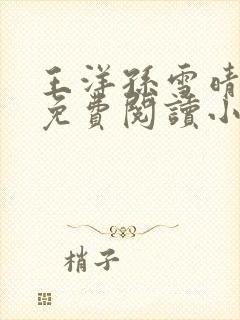 王洋孫雪晴
免費閱讀小
梢子